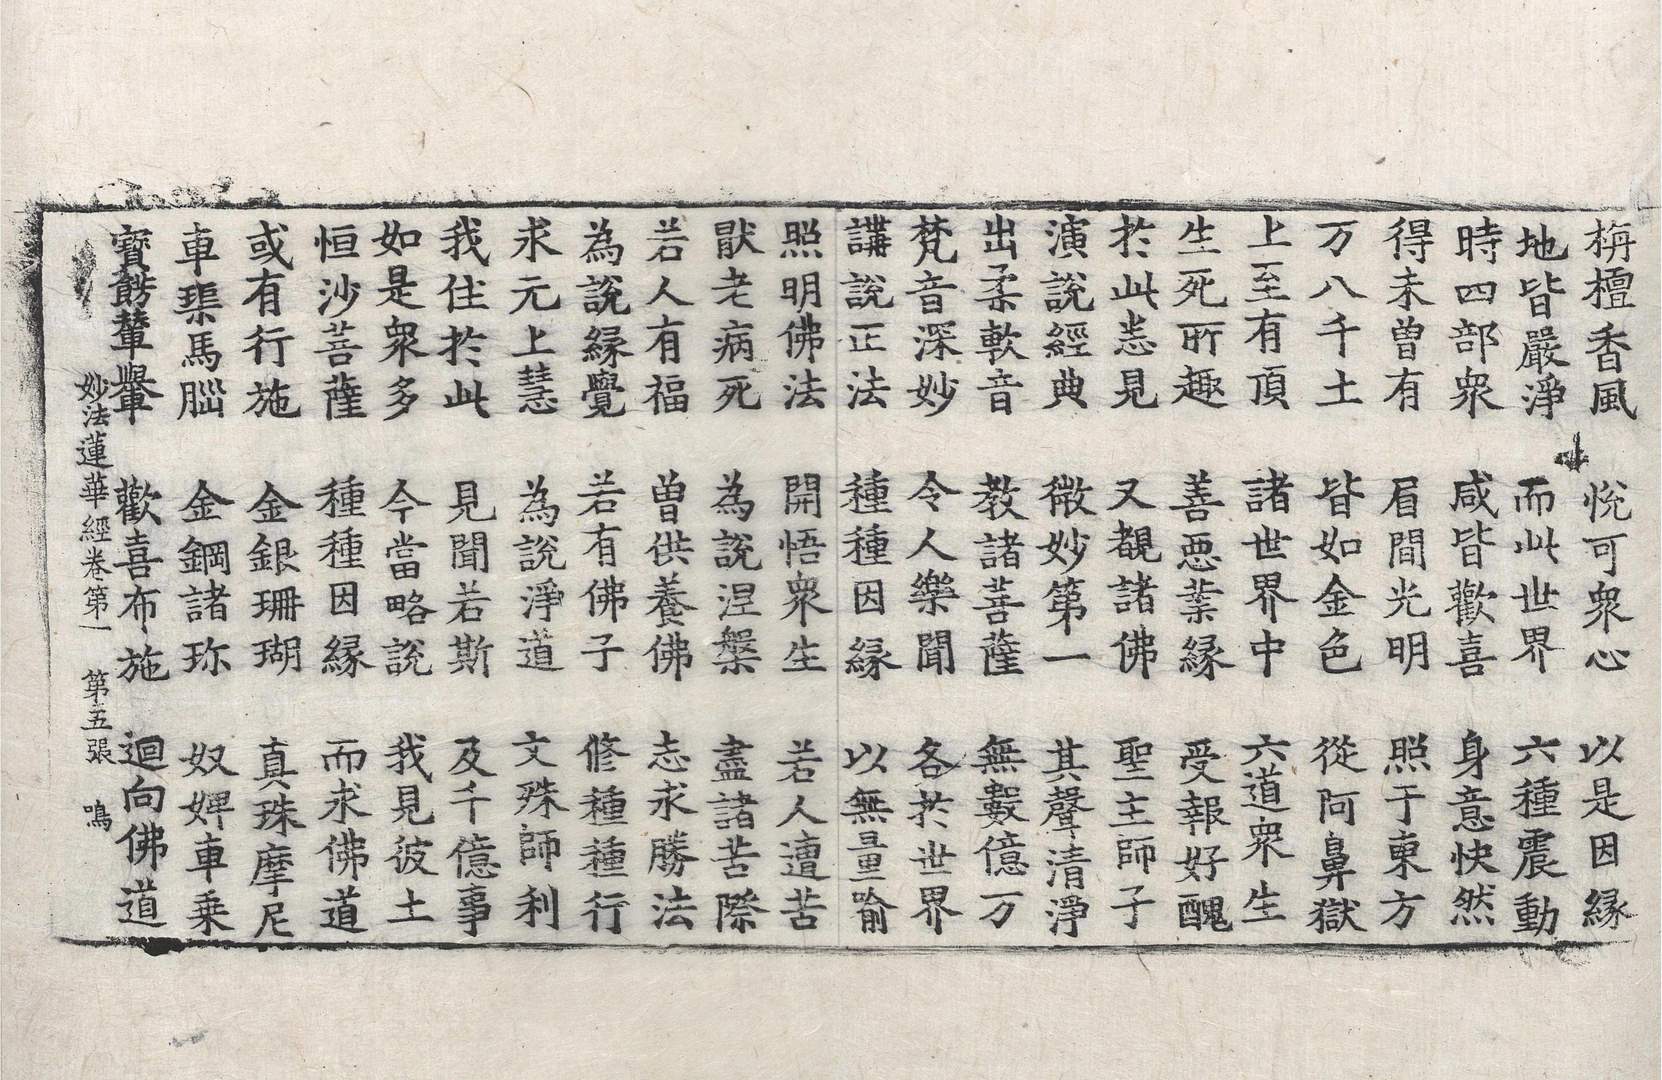 栴檀香風　悅可衆心　以是因緣
地皆嚴淨　而此世界　六種震動
時四部衆　咸皆歡喜　身意快然
得未曾有　眉間光明　照于東方
万八千土　皆如金色　從阿鼻獄
上至有頂　諸世界中　六道衆生
生死所趣　善惡業緣　受報好醜
於此悉見　又覩諸佛　聖主師子
演說經典　微妙第一　其聲清淨
出柔軟音　教諸菩薩　無數億万
梵音深妙　令人樂聞　各於世界
講說正法　種種因緣　以無量喻
照明佛法　開悟衆生　若人遭苦
猒老病死　為說涅槃　盡諸苦際
若人有福　曾供養佛　志求勝法
為說緣覺　若有佛子　修種種行
求无上慧　為說淨道　文殊師利
我住於此　見聞若斯　及千億事
如是衆多　今當略說　我見彼土
恒沙菩薩　種種因緣　而求佛道
或有行施　金銀珊瑚　真珠摩尼
車𤦲馬腦　金鋼諸珎　奴婢車乗
寶餝輦轝　歡喜布施　迴向佛道
妙法蓮華經卷第一　第五張　鳴